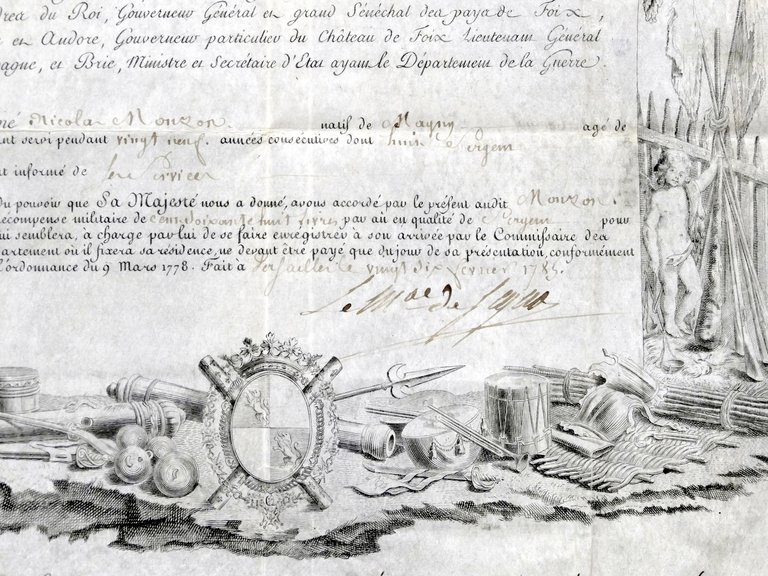 du Roi, Gouverneur Général et grand Sénéchal des pays de Foix,
et Andore, Gouverneur particulier du Château de Foix Lieutenant Général
et Brie, Ministre et Secrétaire d'Etat ayant le Département de la Guerre.
Nicolas Monzon natif de Magny agé de
servi pendant vingt neuf années consécutives dont huit de Sergent
informé de ses services
du pouvoir que Sa Majesté nous a donné, avons accordé par le présent audit Monzon
récompense militaire de Cent soixante huit livres par an en qualité de Sergent pour
semblera, à charge par lui de se faire enregistrer à son arrivée par le Commissaire des
où il fixera sa résidence, ne devant être payé que du jour de sa présentation, conformément
l'ordonnance du 9 Mars 1778. Fait à Versailles le vingt dix fevrier 1785.
Le Mal de Segur